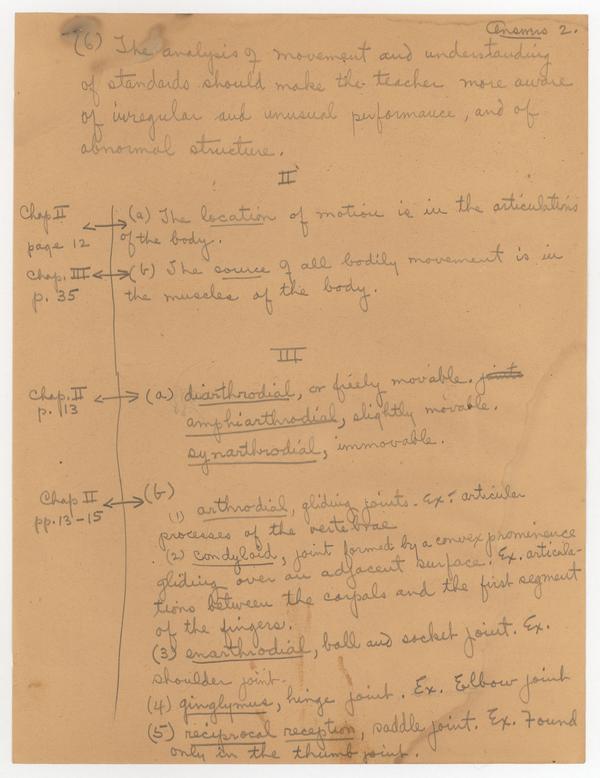 Answers 2.
(6) The analysis of movement and understanding
of standards should make the teacher more aware
of irregular and unusual performance, and of
abnormal structure.
II
Chap II
page 12
(a) The location of motion is in the articulations
of the body.
Chap. III
p. 35
(b) The source of all bodily movement is in
the muscles of the body.
III
Chap. II
p. 13
(a) diarthrodial, or freely movable. joints
amphiarthrodial, slightly movable.
synarthrodial, immovable.
Chap II
pp. 13-15
(b)
(1) arthrodial, gliding joints. Ex: articular
processes of the vertebrae
(2) condyloid, joint formed by a convex prominence
gliding over an adjacent surface. Ex. articula-
tions between the carpals and the first segment
of the fingers.
(3) enarthrodial, ball and socket joint. Ex.
shoulder joint.
(4) ginglymus, hinge joint. Ex. Elbow joint
(5) reciprocal reception, saddle joint. Ex. Found
only in the thumb joint.